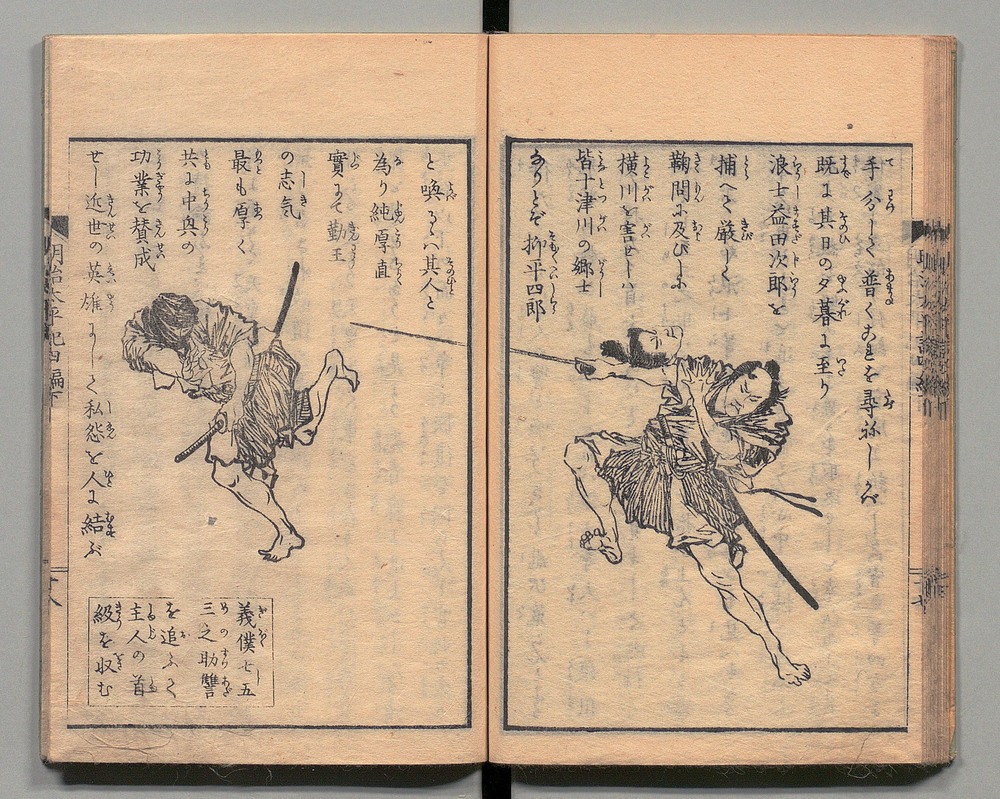 手分して普くこれを尋ねしかバ
既に其日の夕暮に至り
浪士益田次郎を
捕へて厳しく
鞠問に及びしに
横川を害せしハ
皆十津川の郷士
なりとぞ抑平四郎
と喚るハ其人と
為り純厚直
實にて勤王
の志気
最も厚く
共に中興の
功業を賛成
せし近世の英雄にして私怨を人に結ぶ
義僕七五
三之助讐
を追ふて
主人の首
級を収む
明治太平記四編下